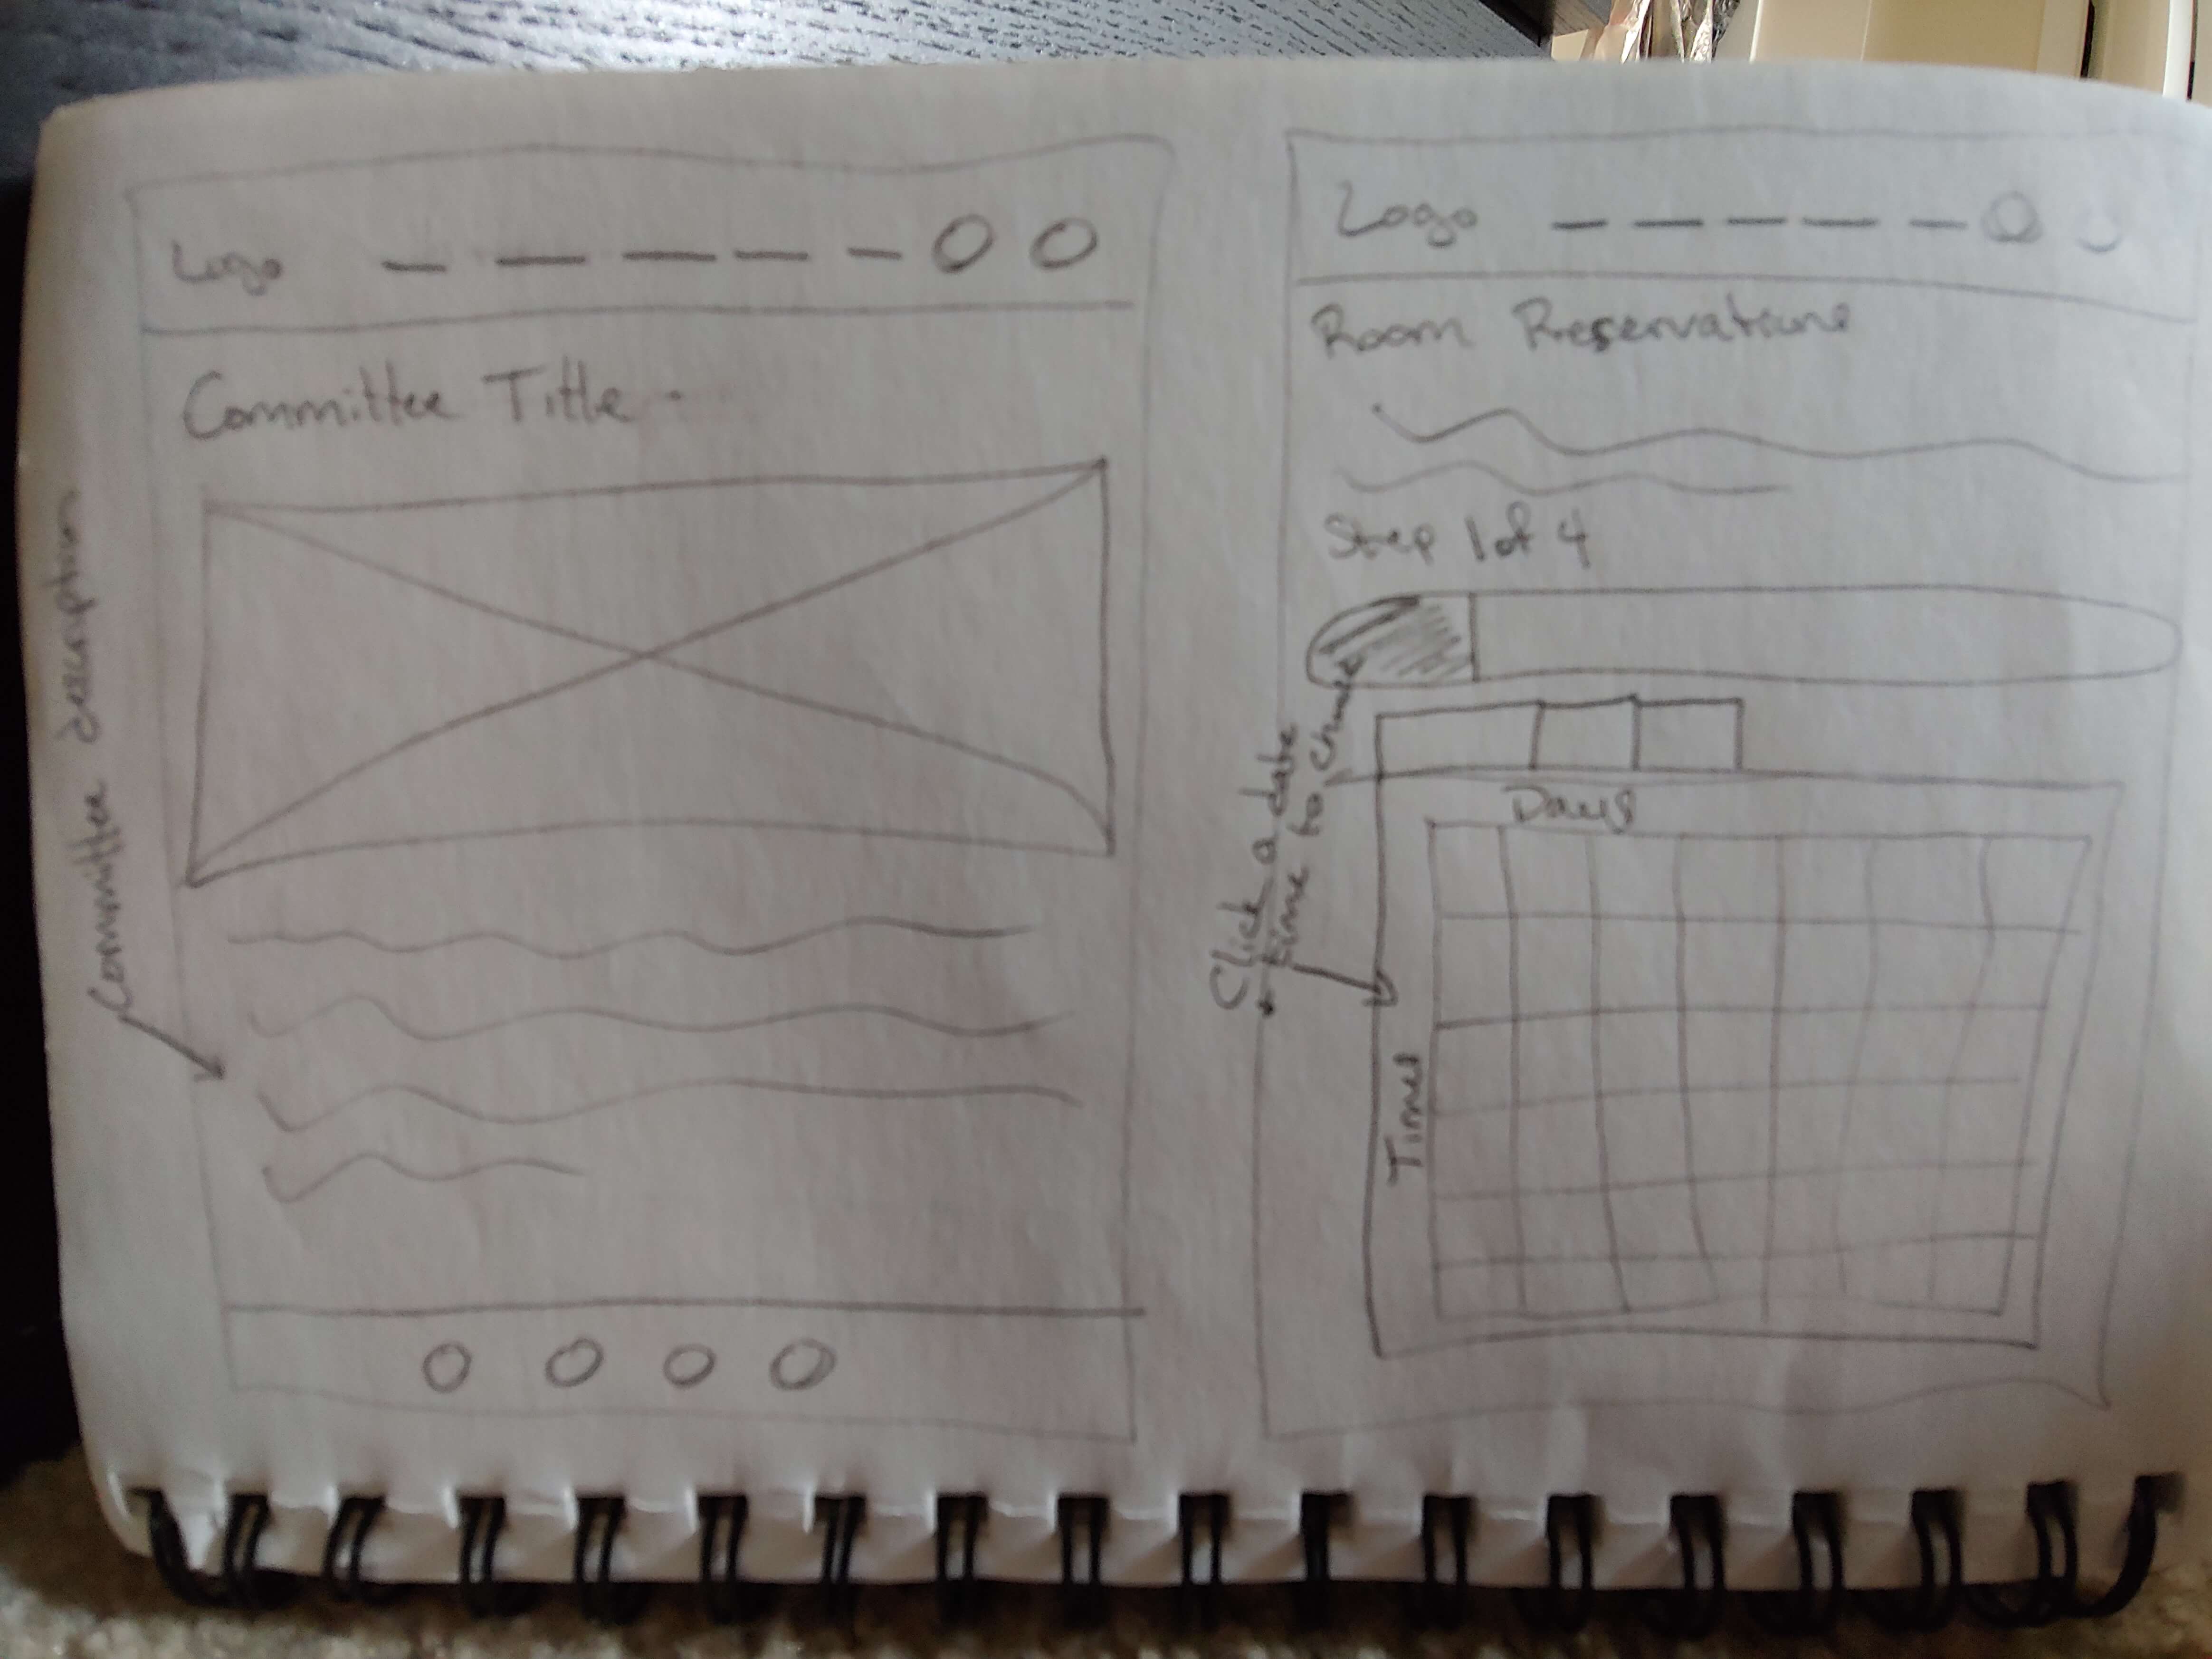 Logo
Committee Title
Committee description
Logo
Room Reservations
Step 1 of 4
Click a date
time to
Days
Times